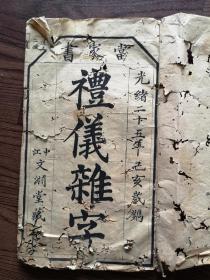 當家書
光緒二十五年己亥歲
禮儀雜字
中江文堂